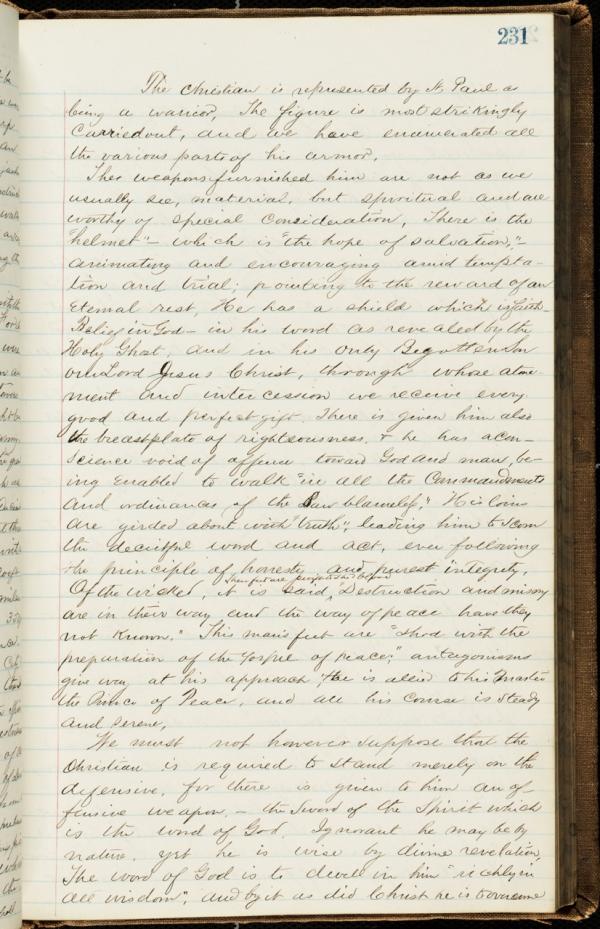 231
The Christian is represented by St. Paul as
being a warrior, The figure is most strikingly
Carried out, and we have enumerated all
the various parts of his armor.
The weapons furnished him are not as we
usually see, material, but spiritual and are
worthy of special consideration, There is the
"helmet" - which is "the hope of salvation,"-
animating and encouraging amid tempta-
tion and trial; pointing to the reward of an
Eternal rest, He has a shield which is faith-
Belief in God - in his word as revealed by the
Holy Ghost, and in his only Begotten Son
our Lord Jesus Christ, through whose atone-
ment and intercession we receive every
good and perfect gift. There is given him also
the breastplate of righteousness. & he has a con-
science void of offense toward God and man, be-
ing Enabled to walk "in all the Commandments
and ordinances of the Law blameless," His loins
are girded about with "truth", leading him to scorn
the deceitful word and act, ever following
the principle of honesty and purest integrity.
Of the wicked, it is said, Destruction and misery
are in their way and the way of peace have they
not known." This man's feet are "Shod with the
preparation of the Gospel of peace;" antagonisms
give way at his approach, he is allied to his Master
the Prince of Peace, and all his course is steady
and serene,
We must not however suppose that the
Christian is required to stand merely on the
defensive, for there is given to him an of-
fensive weapon, - the Sword of the Spirit which
is the word of God. Ignorant he may be by
nature, yet he is wise by divine revelation,
The word of God is to dwell in him "richly in
all wisdom", and by it as did Christ he is to overcome